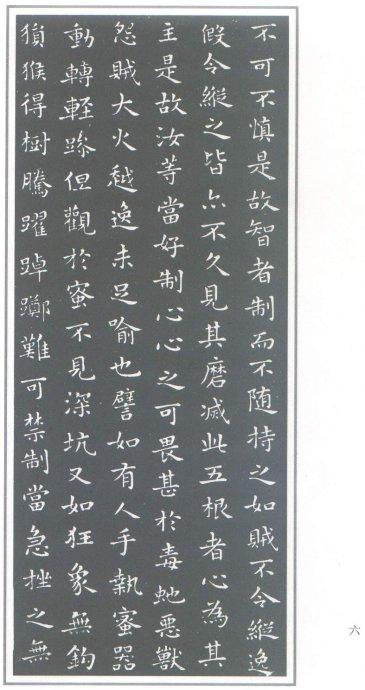 不可不慎是故智者制而不随持之如賊不令縱逸
假令縱之皆亦不久見其磨滅此五根者心為其
主是故汝等當好制心心之可畏甚於毒虵惡獸
怨賊大火越逸未足喻也譬如有人手執蜜器
動轉輕躁但觀於蜜不見深坑又如狂象無鈎
猨猴得樹騰躍踔躑難可禁制當急挫之無
六